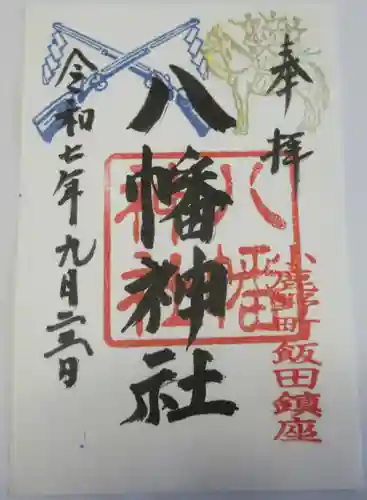 奉拝
八幡神社
令和七年九月二三日
八幡神社
小鹿野町飯田鎮座